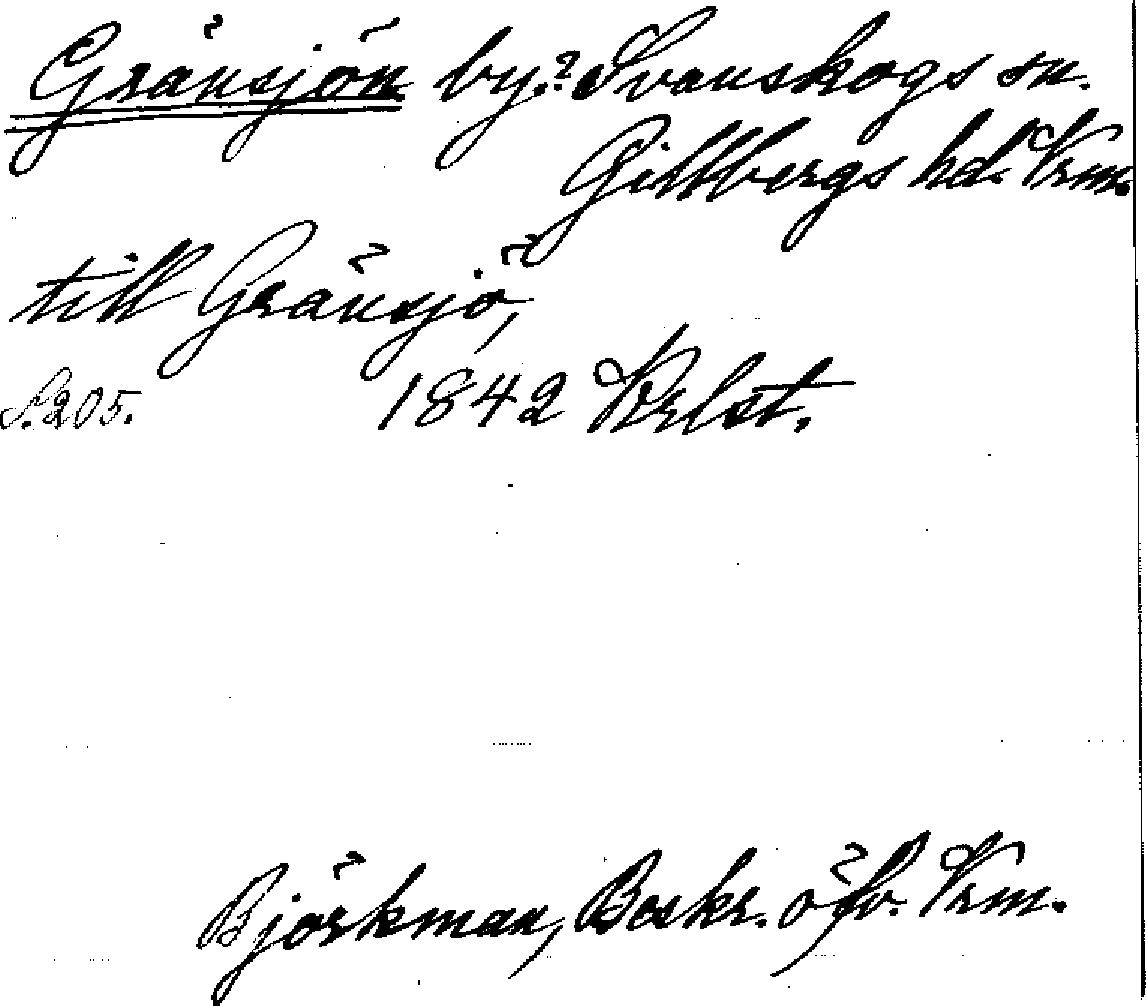 Gränsjön by.? Svanskogs sn.
Gillbergs hd. Vrm.
till Gränsjö,
S. 205. 1842 Krlst.
Björkman, Beskr. öfv. Vrm.